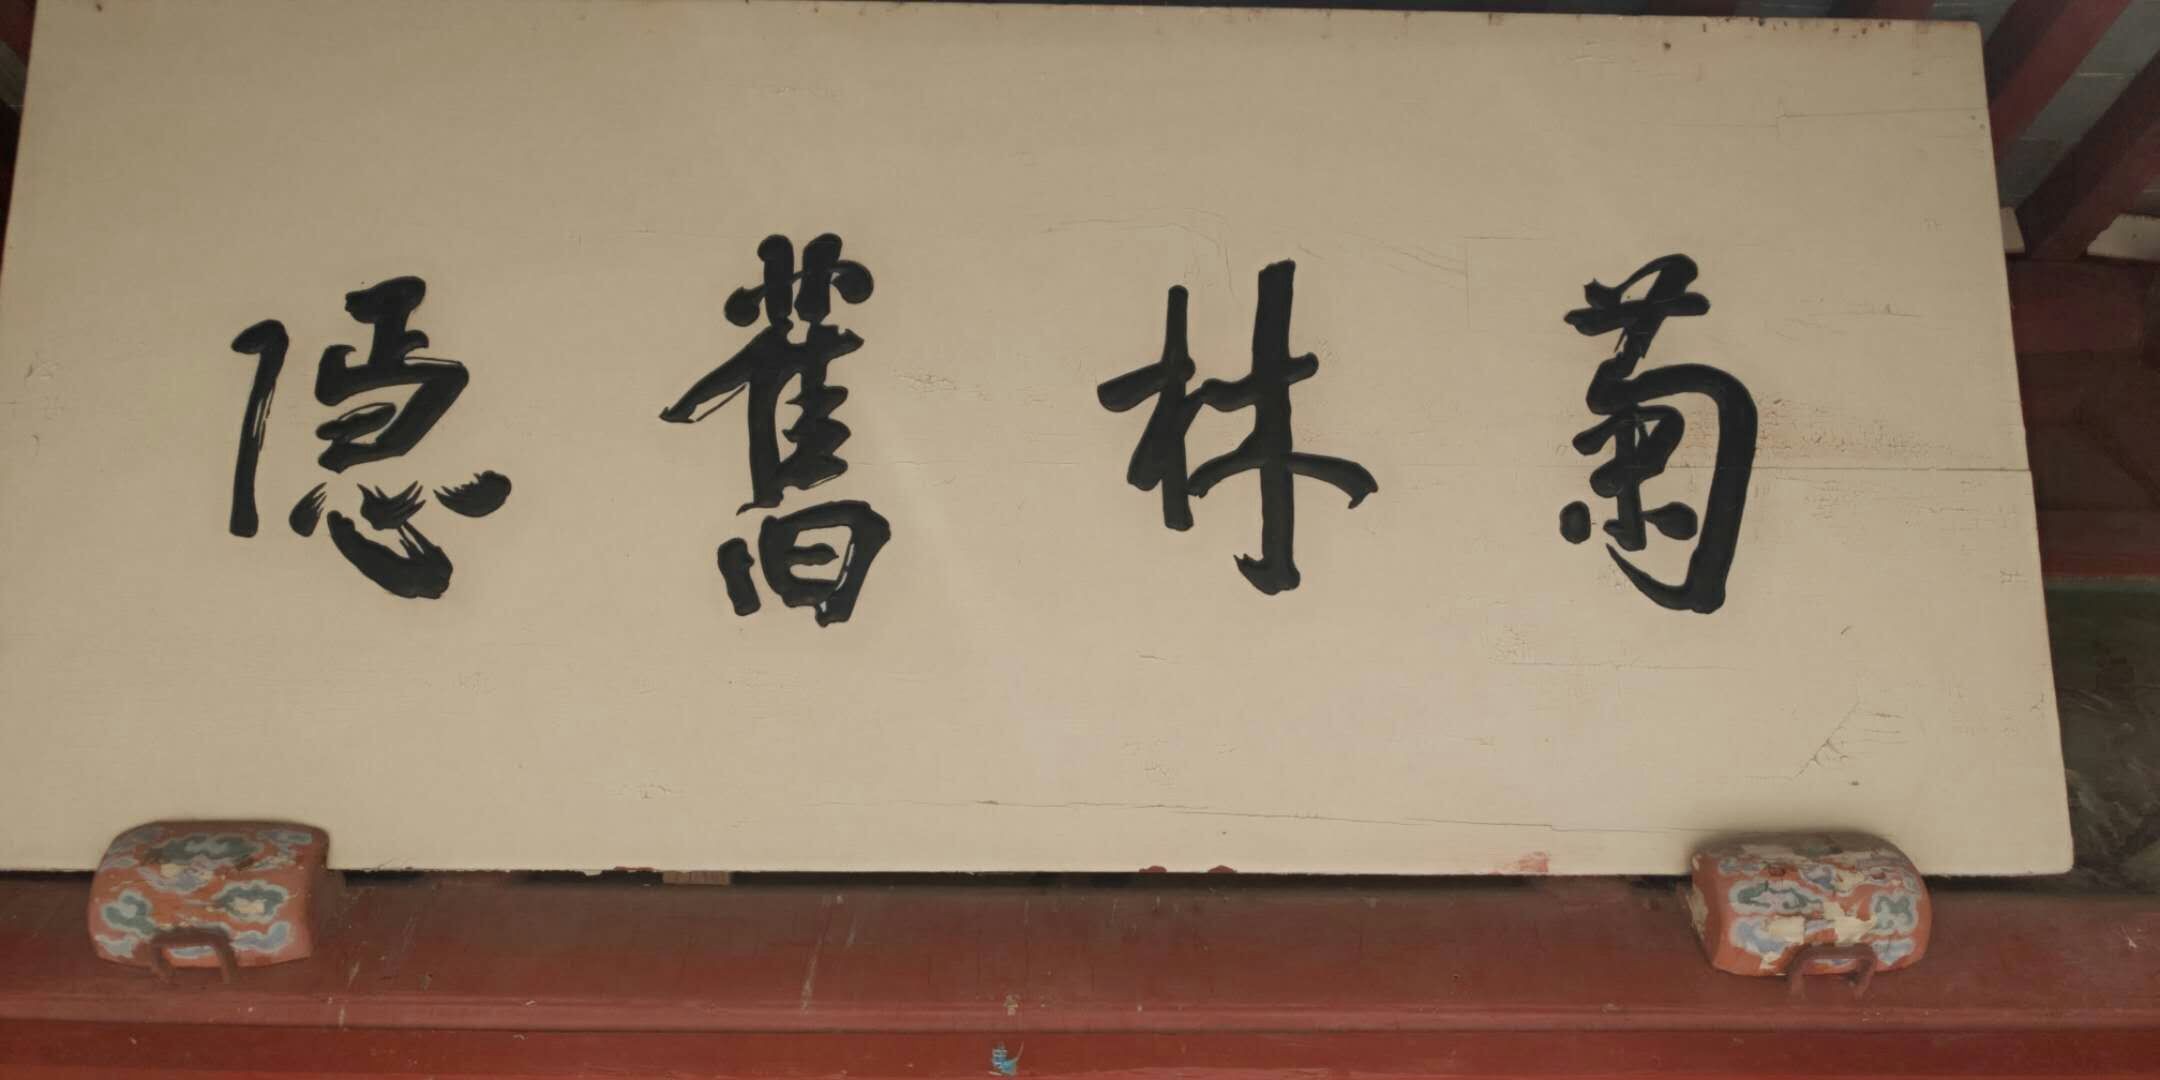 菊林舊隱